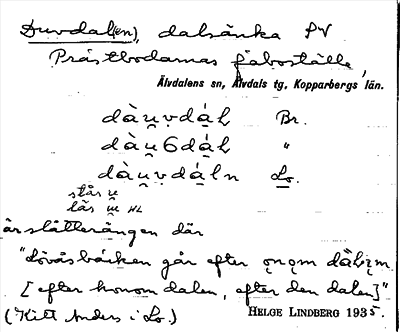 Duvdal(en), dalsänka SV
Prästbodarnas fäboställe,
Älvdalens sn, Älvdals tg, Kopparbergs län.
dàu̯vdál Br.
dàu̯6dál "
dàu̯vdáln Lo.
står u̯
läs u̯ HL
årslåtterängen där
"Lövåsbäcken går efter o̧no̧m dàlįm
[efter honom dalen, efter den dalen]"
(Kitt Anders i Lo.) HELGE LINDBERG 1935.